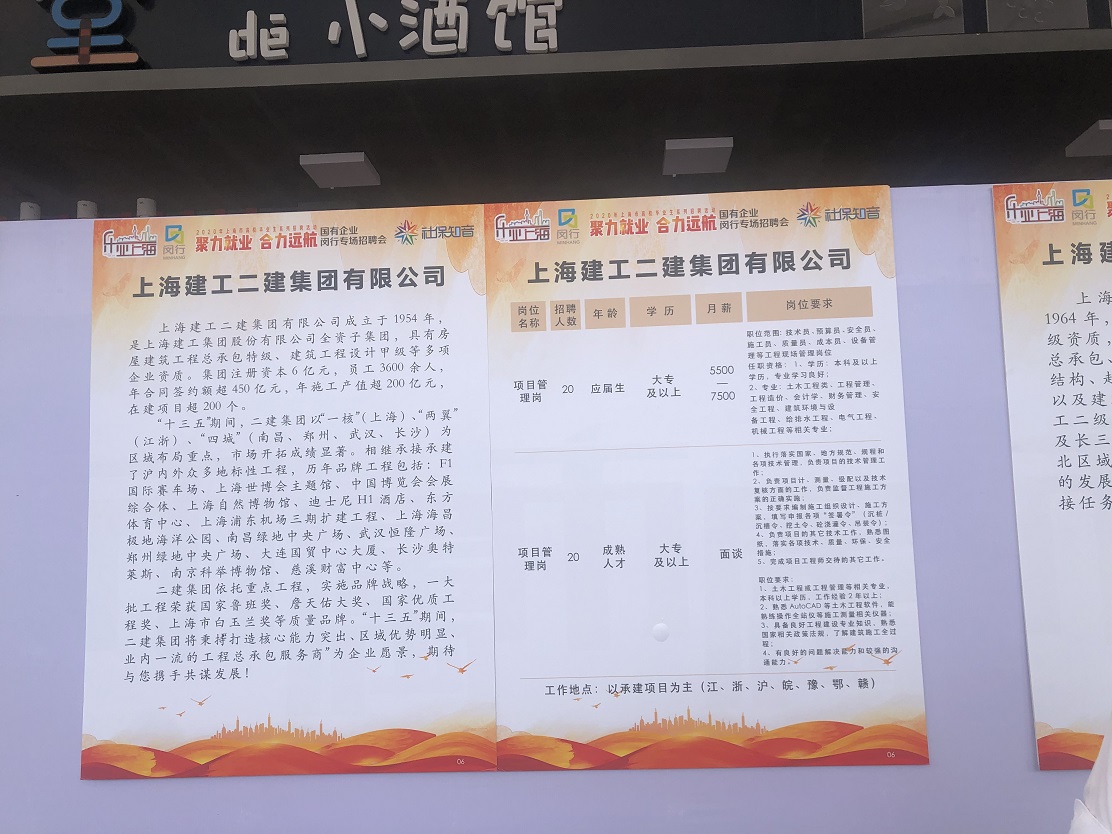 dē 小酒馆
乐业上海
闵行
MINHANG
聚力就业 合力远航
国有企业
闵行专场招聘会
社保知音
上海建工二建集团有限公司
上海建工二建集团有限公司成立于1954年，
是上海建工集团股份有限公司全资子集团，具有房
屋建筑工程总承包特级、建筑工程设计甲级等多项
企业资质。集团注册资本6亿元，员工3600余人，
年合同签约额超450亿元，年施工产值超200亿元，
在建项目超200个。
“十三五”期间，二建集团以“一核”（上海）、“两翼”
（江浙）、“四城”（南昌、郑州、武汉、长沙）为
区域布局重点，市场开拓成绩显著。相继承接承建
了沪内外众多地标性工程，历年品牌工程包括：F1
国际赛车场、上海世博会主题馆、中国博览会会展
综合体、上海自然博物馆、迪士尼H1酒店、东方
体育中心、上海浦东机场三期扩建工程、上海海昌
极地海洋公园、南昌绿地中央广场、武汉恒隆广场、
郑州绿地中央广场、大连国贸中心大厦、长沙奥特
莱斯、南京科举博物馆、慈溪财富中心等。
二建集团依托重点工程，实施品牌战略，一大
批工程荣获国家鲁班奖、詹天佑大奖、国家优质工
程奖、上海市白玉兰奖等质量品牌。“十三五”期间，
二建集团将秉持打造核心能力突出、区域优势明显、
业内一流的工程总承包服务商”为企业愿景，期待
与您携手共谋发展！
06
乐业上海
闵行
MINHANG
聚力就业 合力远航
国有企业
闵行专场招聘会
社保知音
上海建工二建集团有限公司
岗位名称 招聘人数 年龄 学历 月薪 岗位要求
项目管理岗 20 应届生 大专及以上 5500—7500
职位范围：技术员、预算员、安全员、
施工员、质量员、成本员、设备管
理等工程现场管理岗位
任职资格：1、学历：本科及以上
学历，专业学习良好；
2、专业：土木工程类、工程管理、
工程造价、会计学、财务管理、安
全工程、建筑环境与设
备工程、给排水工程、电气工程、
机械工程等相关专业；
项目管理岗 20 成熟人才 大专及以上 面谈
1、执行落实国家、地方规范、规程和
各项技术管理，负责项目的技术管理工
作；
2、负责项目计、测量、级配以及技术
复核方面的工作，负责监督工程施工方
案的正确实施；
3、按要求编制施工组织设计、施工方
案，填写申报各项“签署令”（沉桩/
沉槽令、挖土令、砼浇灌令、吊装令）；
4、负责项目的其它技术工作，熟悉图
纸，落实各项技术、质量、环保、安全
措施；
5、完成项目工程师交待的其它工作。
职位要求：
1、土木工程或工程管理等相关专业，
本科以上学历，工作经验2年以上；
2、熟悉AutoCAD等土木工程软件，能
熟练操作全站仪等施工测量相关仪器；
3、具备良好工程建设专业知识，熟悉
国家相关政策法规，了解建筑施工全过
程；
4、有良好的问题解决能力和较强的沟
通能力。
工作地点：以承建项目为主（江、浙、沪、皖、豫、鄂、赣）
06
乐业上海
闵行
MINHANG
上海建
上海
1964年，
级资质，
总承包、
结构、
以及建
工二级
及长三
北区域
的发展
接任务